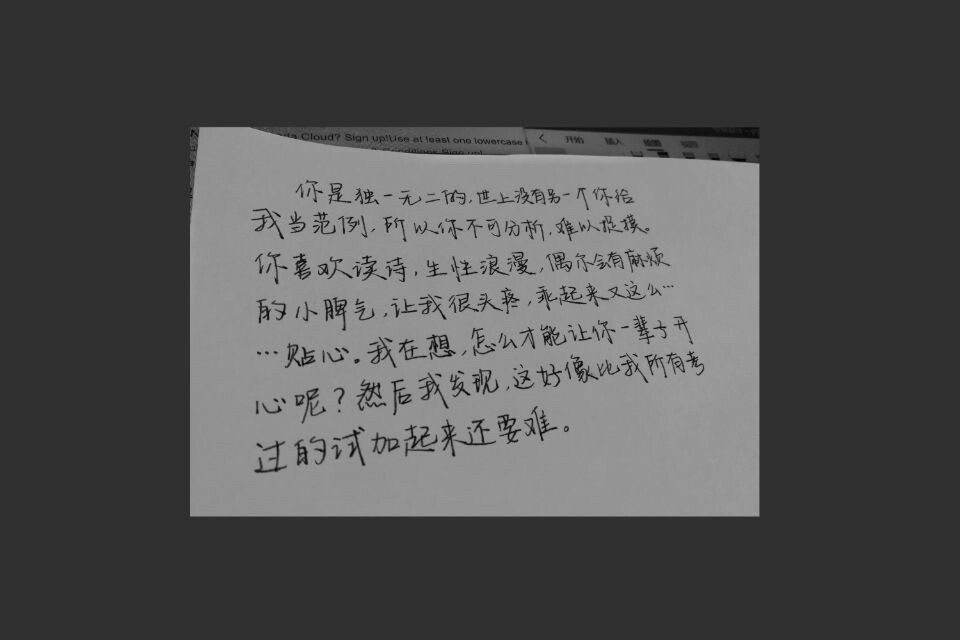 da Cloud? Sign up!Use at least one lowercase
Conditions.Sign up!
开始 插入 绘图 视图
你是独一无二的,世上没有另一个你给
我当范例,所以你不可分析,难以捉摸。
你喜欢读诗,生性浪漫,偶尔会有麻烦
的小脾气,让我很头疼,乖起来又这么…
…贴心。我在想,怎么才能让你一辈子开
心呢?然后我发现,这好像比我所有考
过的试加起来还要难。